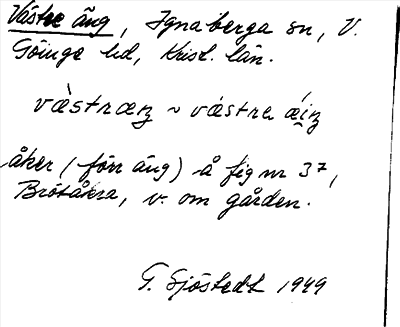 Västre äng, Ignaberga sn, V.
Göinge hd, Krist. län.
væ̀stræŋ ~ væ̀stre ǽiŋ
åker (förr äng) å fig nr 37,
Brötåkra, v. om gården.
G. Sjöstedt 1949